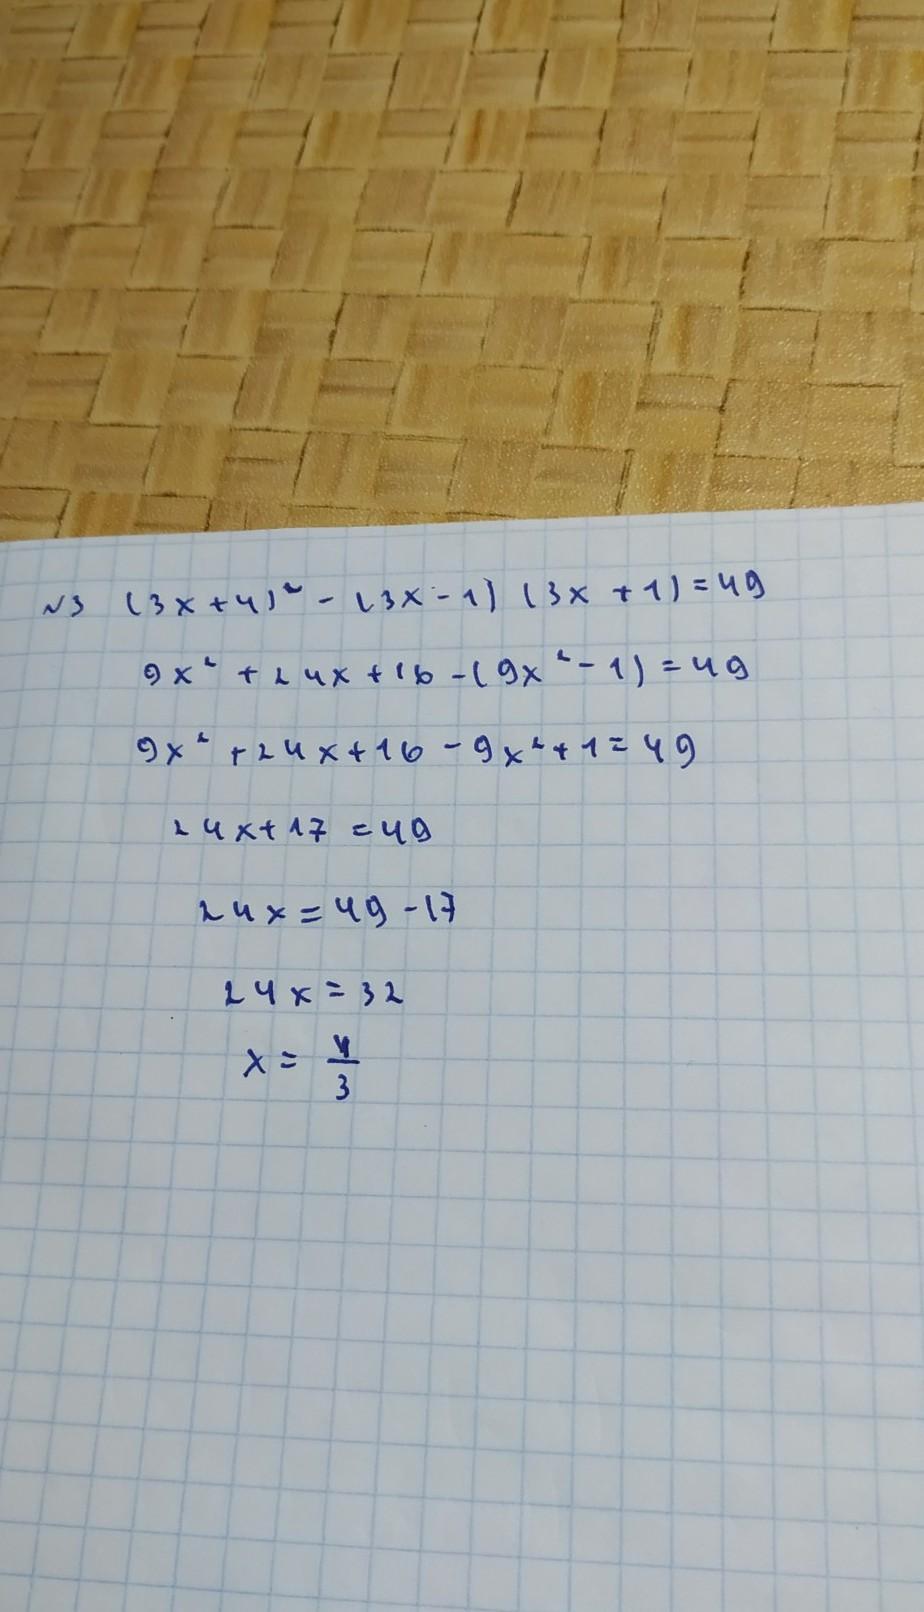 №3 (3x+4)² - (3x-1) (3x+1) = 49
9x² + 24x + 16 - (9x² - 1) = 49
9x² + 24x + 16 - 9x² + 1 = 49
24x + 17 = 49
24x = 49 - 17
24x = 32
x = 4/3